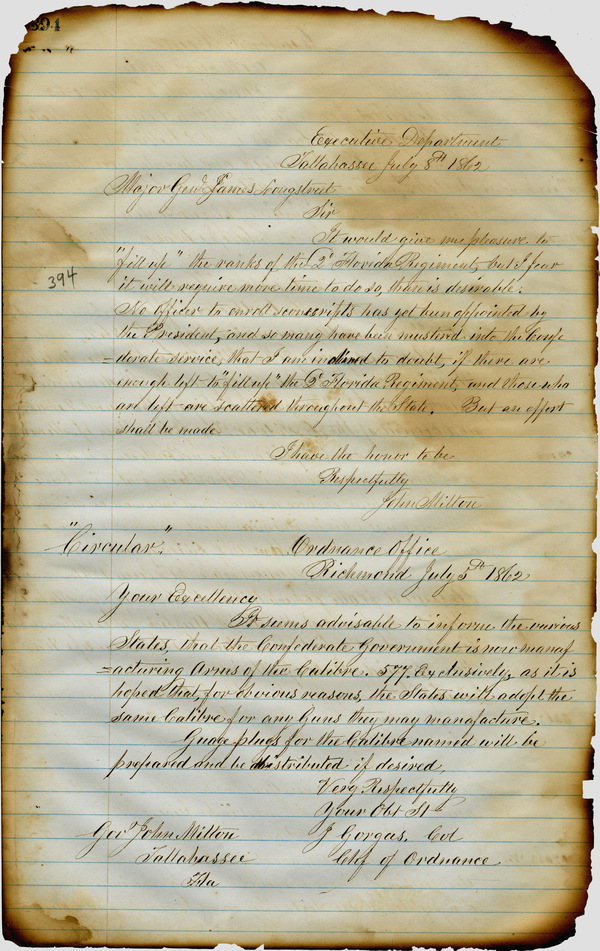 394
Executive Department
Tallahassee July 8th 1862
Major Genl James Longstreet
Sir
It would give me pleasure to
"fill up" the ranks of the 2d Florida Regiment, but I fear
394
it will require more time to do so, than is desirable.
No officer to enroll conscripts has yet been appointed by
the President, and so many have been mustered into the Confe
=derate service, that I am inclined to doubt, if there are
enough left to "fill up" the 2d Florida Regiment, and those who
are left are scattered throughout the State. But an effort
shall be made
I have the honor to be
Respectfully
John Milton
"Circular". Ordnance Office
Richmond July 5th 1862
Your Excellency
It seems advisable to inform the various
States, that the Confederate Government is now manuf
=acturing Arms of the Calibre .577 Exclusively, as it is
hoped that, for obvious reasons, the States will adopt the
same Calibre for any Guns they may manufacture.
Guage plugs for the Calibre named will be
prepared and be distributed if desired.
Very Respectfully
Your Obt St
Govr John Milton J Gorgas, Col
Tallahassee Chf of Ordnance
Fla